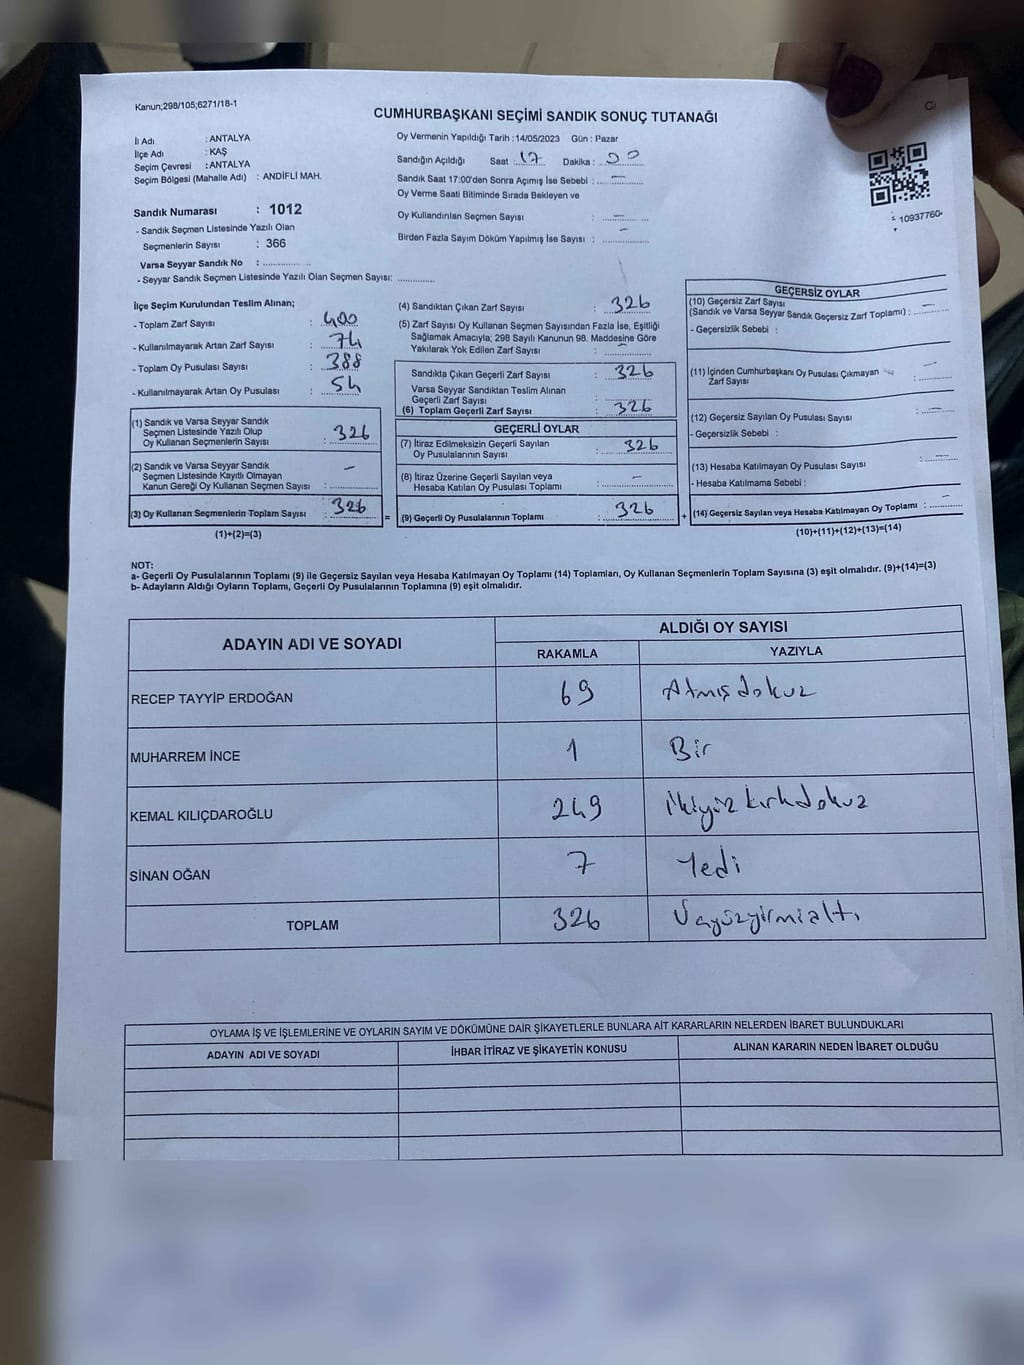 Kanun;298/105;6271/18-1
CUMHURBAŞKANI SEÇİMİ SANDIK SONUÇ TUTANAĞI
İl Adı : ANTALYA
İlçe Adı : KAŞ
Seçim Çevresi : ANTALYA
Seçim Bölgesi (Mahalle Adı) : ANDİFLİ MAH.
Sandık Numarası : 1012
- Sandık Seçmen Listesinde Yazılı Olan
Seçmenlerin Sayısı : 366
Varsa Seyyar Sandık No :
- Seyyar Sandık Seçmen Listesinde Yazılı Olan Seçmen Sayısı:
Oy Vermenin Yapıldığı Tarih : 14/05/2023 Gün : Pazar
Sandığın Açıldığı Saat : 17 Dakika : 00
Sandık Saat 17:00'den Sonra Açımış İse Sebebi : —
Oy Verme Saati Bitiminde Sırada Bekleyen ve
Oy Kullandırılan Seçmen Sayısı : —
Birden Fazla Sayım Döküm Yapılmış İse Sayısı : —
10937760
İlçe Seçim Kurulundan Teslim Alınan;
- Toplam Zarf Sayısı : 400
- Kullanılmayarak Artan Zarf Sayısı : 74
- Toplam Oy Pusulası Sayısı : 388
- Kullanılmayarak Artan Oy Pusulası : 54
(1) Sandık ve Varsa Seyyar Sandık
Seçmen Listesinde Yazılı Olup
Oy Kullanan Seçmenlerin Sayısı : 326
(2) Sandık ve Varsa Seyyar Sandık
Seçmen Listesinde Kayıtlı Olmayan
Kanun Gereği Oy Kullanan Seçmen Sayısı : —
(3) Oy Kullanan Seçmenlerin Toplam Sayısı : 326
(1)+(2)=(3)
(4) Sandıktan Çıkan Zarf Sayısı : 326
(5) Zarf Sayısı Oy Kullanan Seçmen Sayısından Fazla İse, Eşitliği
Sağlamak Amacıyla; 298 Sayılı Kanunun 98. Maddesine Göre
Yakılarak Yok Edilen Zarf Sayısı : —
Sandıkta Çıkan Geçerli Zarf Sayısı : 326
Varsa Seyyar Sandıktan Teslim Alınan
Geçerli Zarf Sayısı :
(6) Toplam Geçerli Zarf Sayısı : 326
GEÇERLİ OYLAR
(7) İtiraz Edilmeksizin Geçerli Sayılan
Oy Pusulalarının Sayısı : 326
(8) İtiraz Üzerine Geçerli Sayılan veya
Hesaba Katılan Oy Pusulası Toplamı : —
= (9) Geçerli Oy Pusulalarının Toplamı : 326
GEÇERSİZ OYLAR
(10) Geçersiz Zarf Sayısı
(Sandık ve Varsa Seyyar Sandık Geçersiz Zarf Toplamı) : —
- Geçersizlik Sebebi :
(11) İçinden Cumhurbaşkanı Oy Pusulası Çıkmayan
Zarf Sayısı : —
(12) Geçersiz Sayılan Oy Pusulası Sayısı : —
- Geçersizlik Sebebi :
(13) Hesaba Katılmayan Oy Pusulası Sayısı : —
- Hesaba Katılmama Sebebi :
+ (14) Geçersiz Sayılan veya Hesaba Katılmayan Oy Toplamı : —
(10)+(11)+(12)+(13)=(14)
NOT:
a- Geçerli Oy Pusulalarının Toplamı (9) ile Geçersiz Sayılan veya Hesaba Katılmayan Oy Toplamı (14) Toplamları, Oy Kullanan Seçmenlerin Toplam Sayısına (3) eşit olmalıdır. (9)+(14)=(3)
b- Adayların Aldığı Oyların Toplamı, Geçerli Oy Pusulalarının Toplamına (9) eşit olmalıdır.
ADAYIN ADI VE SOYADI ALDIĞI OY SAYISI
RAKAMLA YAZIYLA
RECEP TAYYİP ERDOĞAN 69 Atmışdokuz
MUHARREM İNCE 1 Bir
KEMAL KILIÇDAROĞLU 249 İkiyüzkırkdokuz
SİNAN OĞAN 7 Yedi
TOPLAM 326 Üçyüzyirmialtı
OYLAMA İŞ VE İŞLEMLERİNE VE OYLARIN SAYIM VE DÖKÜMÜNE DAİR ŞİKAYETLERLE BUNLARA AİT KARARLARIN NELERDEN İBARET BULUNDUKLARI
ADAYIN ADI VE SOYADI İHBAR İTİRAZ VE ŞİKAYETİN KONUSU ALINAN KARARIN NEDEN İBARET OLDUĞU